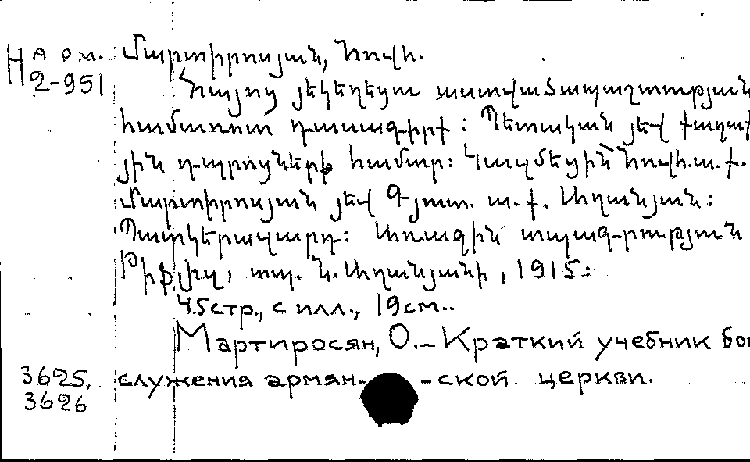 Н арм. Մարտիրոսյան, Հովհ.
2-951 Հայոց յեկեղեցու աստվածապաշտության
համառոտ դասագիրք: Պետական յեվ քաղաք
յին դպրոցների համար: Կազմեցին Հովհ. ա. ք.
Մարտիրոսյան յեվ Գյուտ. ա. ք. Աղանյան:
Պատկերավարդ: Առաջին տպագրություն
Թիֆլիզ, տպ. Ն. Աղանյանի, 1915:
45стр., с илл., 19см..
Мартиросян, О.- Краткий учебник бог
3625, служения армян- -ской церкви.
3626